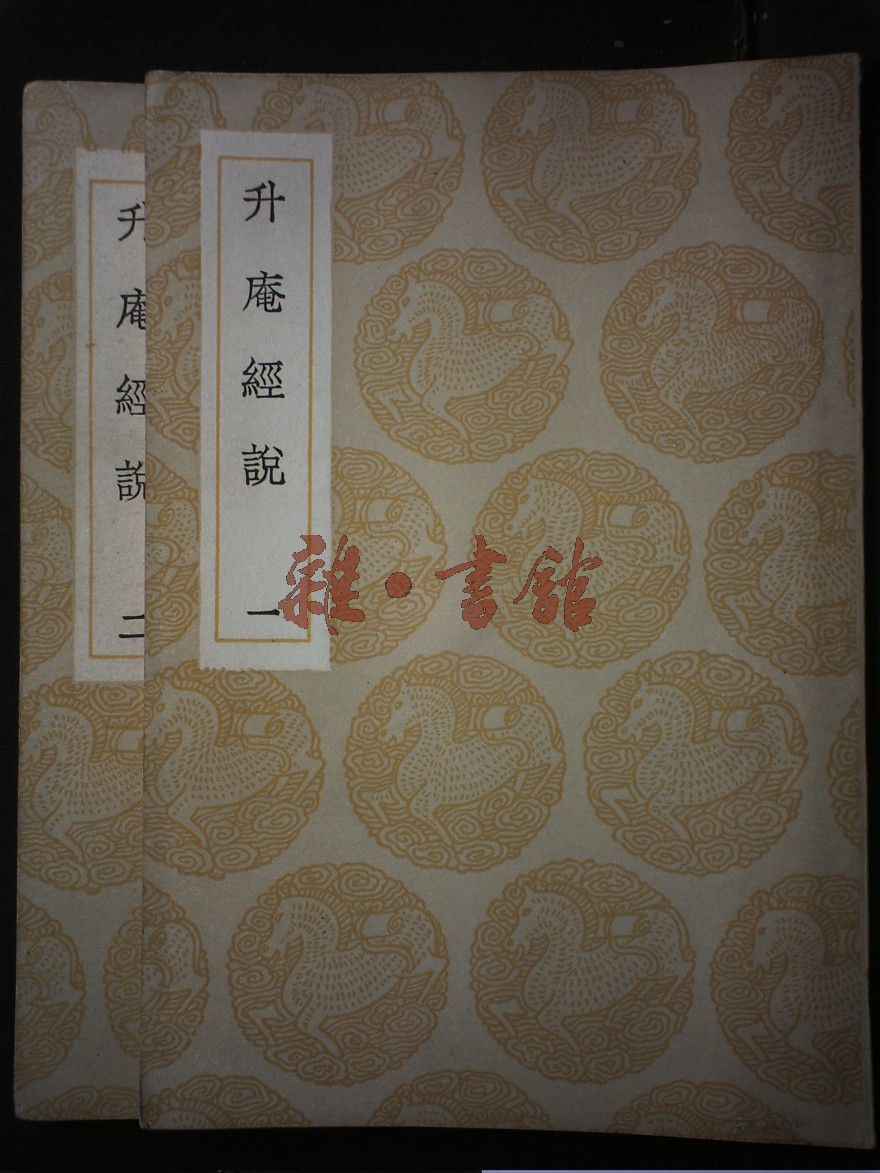 升庵經說 一
升庵經說 二
雜·書館